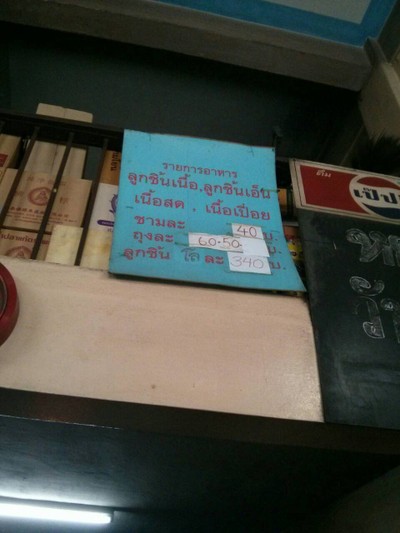 รายการอาหาร
ลูกชิ้นเนื้อ, ลูกชิ้นเอ็น
เนื้อสด , เนื้อเปื่อย
ชามละ 40 บ.
ถุงละ 60-50 บ.
ลูกชิ้น โล ละ 340 บ.
ดื่ม
เป๊ป